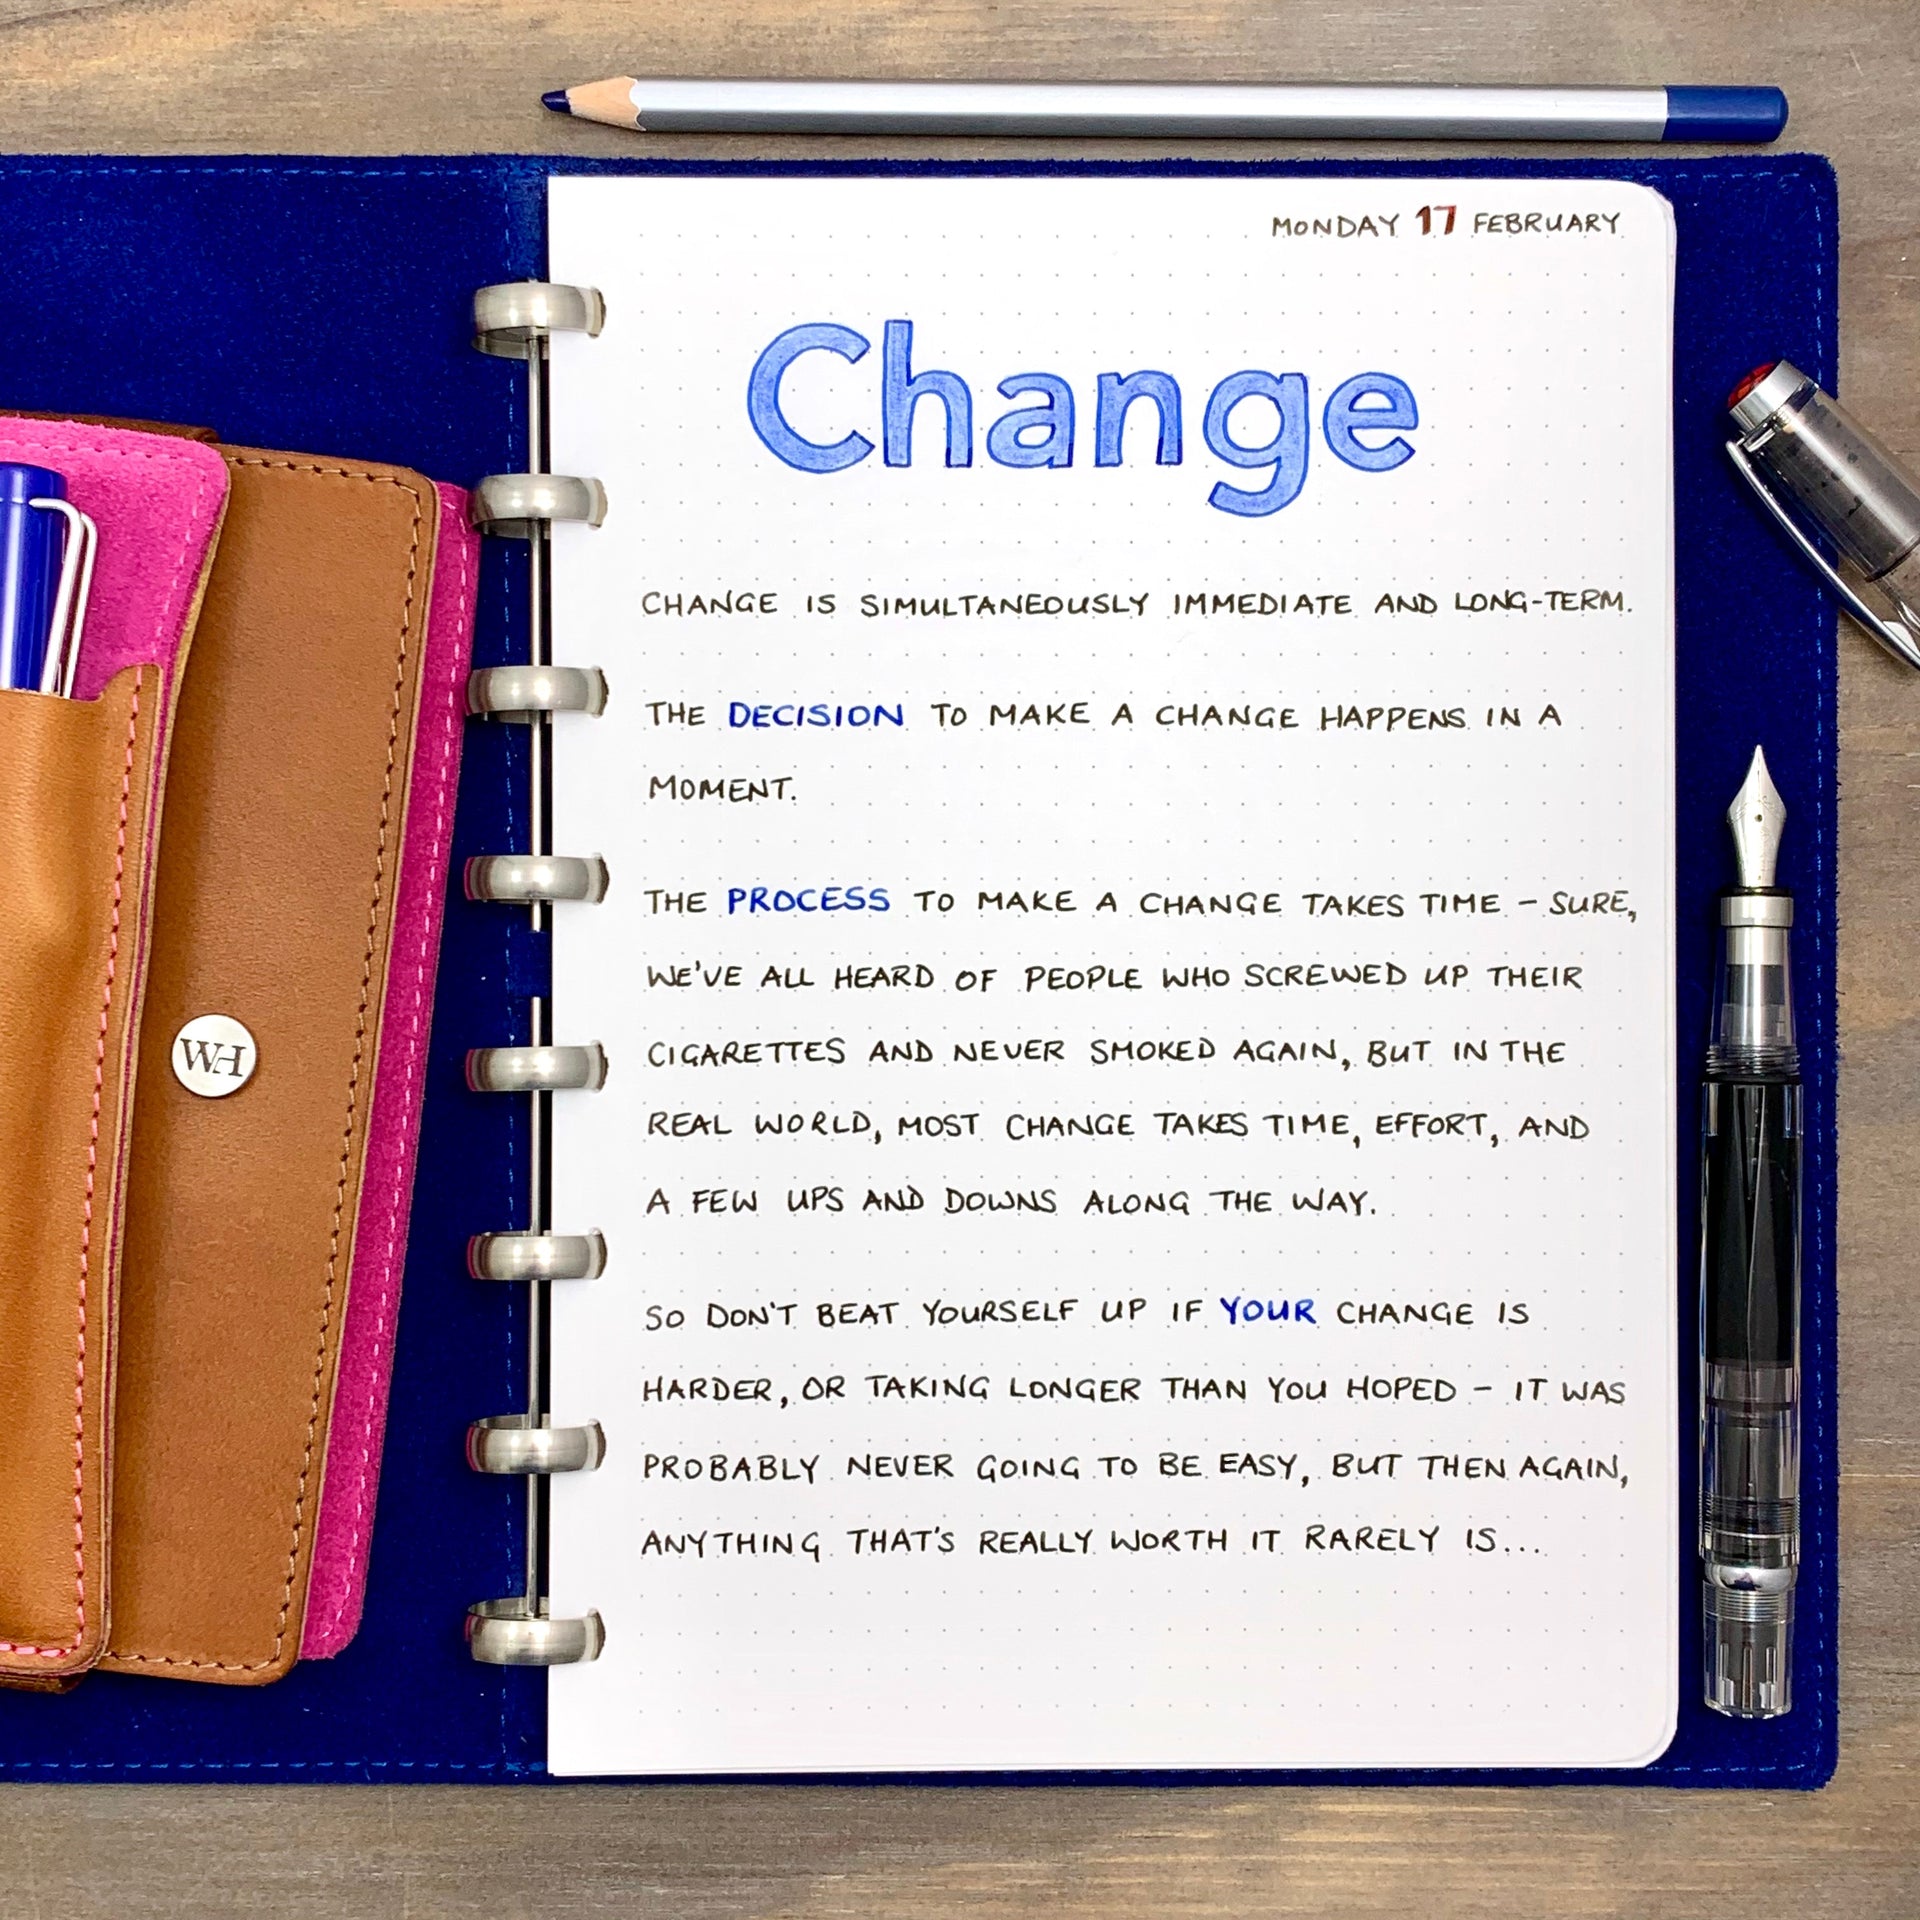 MONDAY 17 FEBRUARY
Change
CHANGE IS SIMULTANEOUSLY IMMEDIATE AND LONG-TERM.
THE DECISION TO MAKE A CHANGE HAPPENS IN A
MOMENT.
THE PROCESS TO MAKE A CHANGE TAKES TIME – SURE,
WE'VE ALL HEARD OF PEOPLE WHO SCREWED UP THEIR
CIGARETTES AND NEVER SMOKED AGAIN, BUT IN THE
REAL WORLD, MOST CHANGE TAKES TIME, EFFORT, AND
A FEW UPS AND DOWNS ALONG THE WAY.
SO DON'T BEAT YOURSELF UP IF YOUR CHANGE IS
HARDER, OR TAKING LONGER THAN YOU HOPED – IT WAS
PROBABLY NEVER GOING TO BE EASY, BUT THEN AGAIN,
ANYTHING THAT'S REALLY WORTH IT RARELY IS...
WH